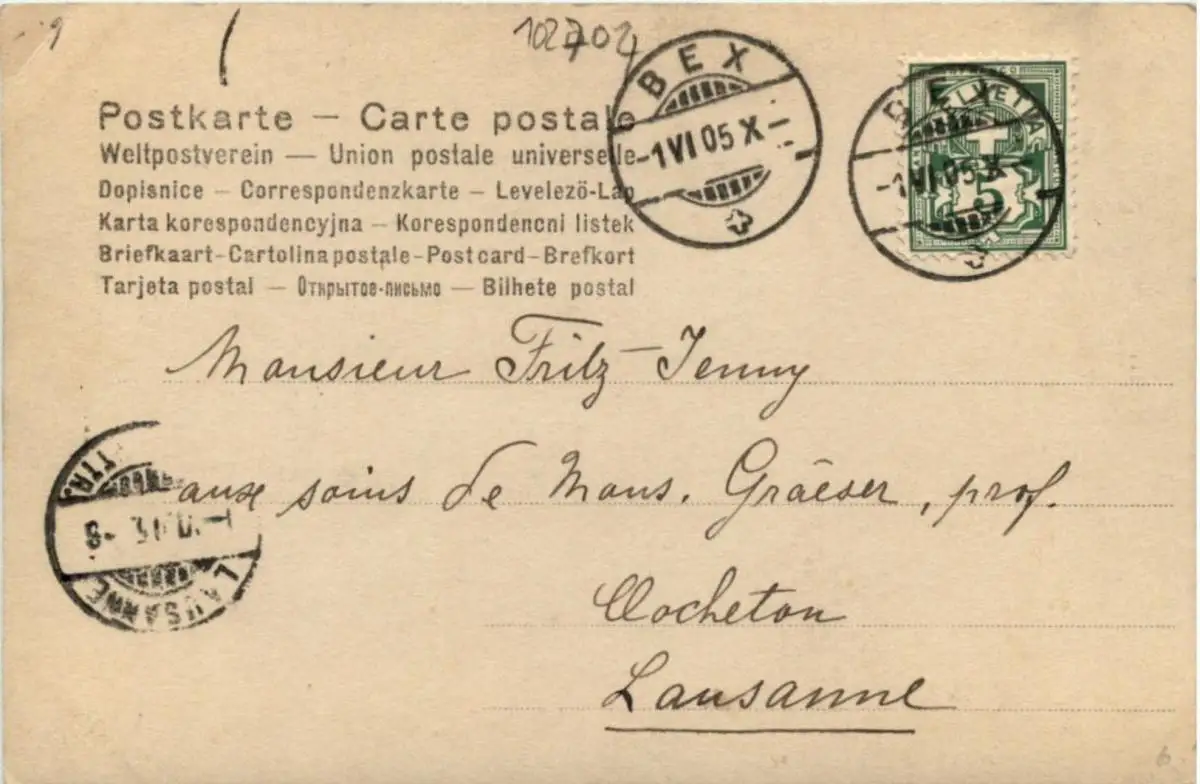 102702
Postkarte — Carte postale
Weltpostverein — Union postale universelle
Dopisnice — Correspondenzkarte — Levelező-Lap
Karta korespondencyjna — Korespondencni listek
Briefkaart-Cartolina postale-Postcard-Brefkort
Tarjeta postal — Открытое-письмо — Bilhete postal
BEX
-1 VI 05 X-
BEX
-1 VI 05 X-
HELVETIA
5
Monsieur Fritz Jenny
aux soins de Mons. Gräeser, prof.
Clocheton
Lausanne
LAUSANNE
TTR.
6